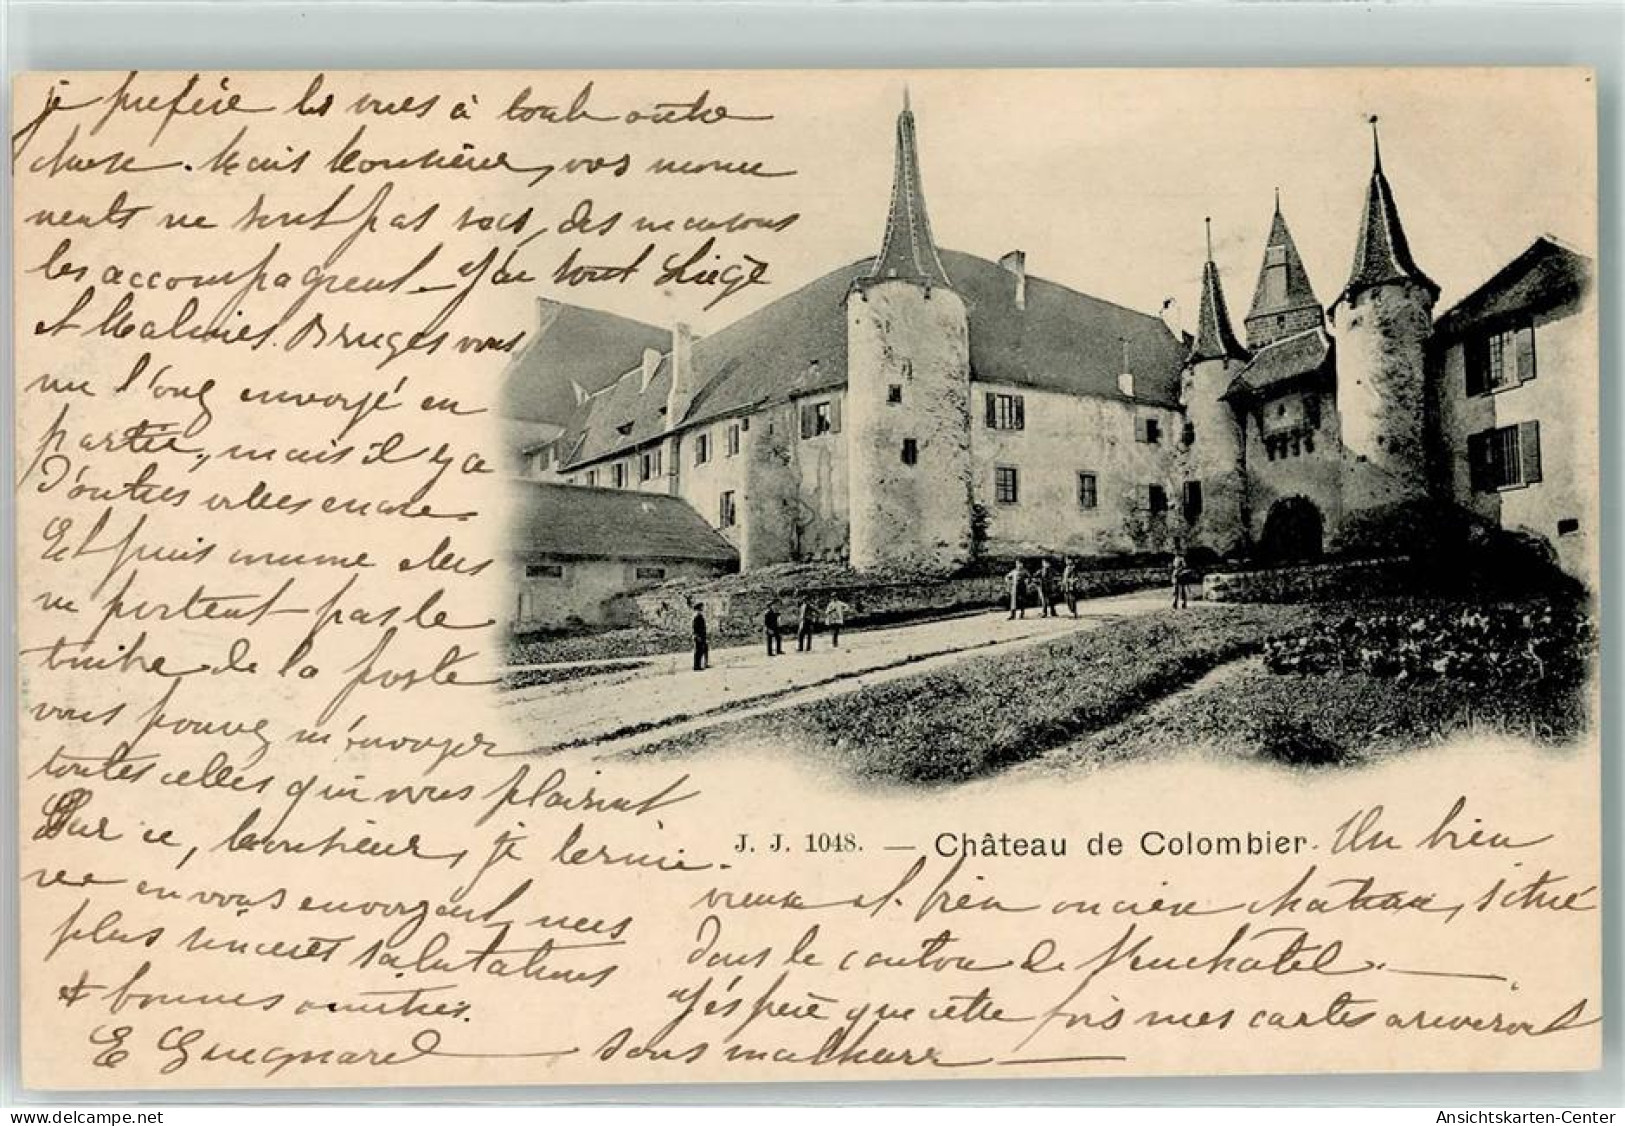 je préfère les vues à toute autre
chose. Mais Monsieur, vos monu
ments ne sont pas seuls, des maisons
les accompagnent. J'ai tout Liège
et Malines. Bruges vous
me l'avez envoyé en
partie, mais il y a
d'autres villes encore.
Et puis comme elles
ne portent pas le
timbre de la poste
vous pouvez m'envoyer
toutes celles qui vous plairont
Sur ce, Monsieur, je termi-
ne en vous envoyant, mes
plus sincères salutations
& bonnes amitiés.
E Guegnard
J. J. 1048. — Château de Colombier. Un bien
vieux et bien ancien château, situé
dans le canton de Neuchâtel.
J'éspère que cette fois mes cartes ariveront
sans malheur
Ansichtskarten-Center
https://www.delcampe.net